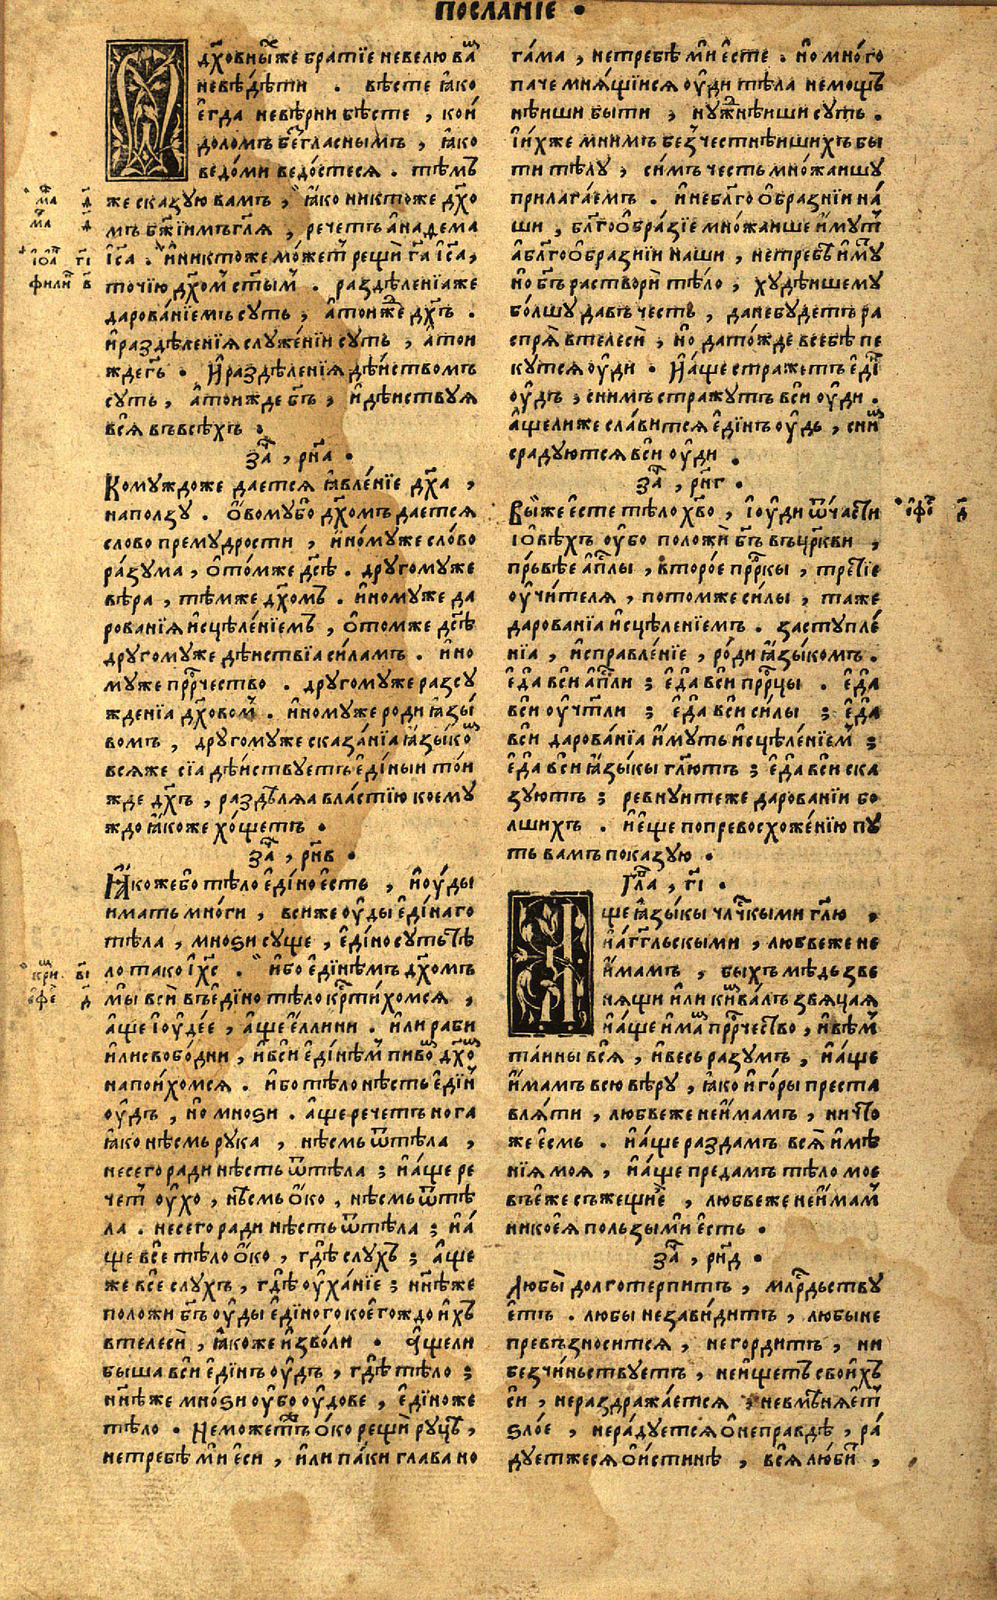 ПОСЛАНІЕ .
О дх҃овныⷯже братїе невелю ваⷨ
невѣ́дѣти . вѣсте ꙗ҆́ко
є҆гда невѣ́рни бѣсте , кои҆
доломъ беⷥгласнымъ , ꙗ҆ко
ведо́ми ведо́стеся . тѣмъ
же сказую вамъ , ꙗ҆ко никтоже дх҃о
мъ бж҃їимъ гл҃я , речетъ а҆наѳема
і҆с҃а . и҆никтоже мо́жеⷮ рещѝ гд҃а і҆с҃а ,
точїю дх҃омⸯ ст҃ымⸯ . раздѣле́нїѧже
дарова́нїемъ суть , а҆то́иже дх҃ъ .
и҆раздѣле́нїѧ служе́нїи суть , а҆тои
ждегд҃ь . И҆раздѣле́нїѧ дѣ́иствомъ
суть , а҆то́ижде бг҃ъ , и҆дѣ́иствуѧ
всѧ̀ въвсѣ́хъ .
за҃ , рн҃а .
Комуждоже дается ꙗ҆вле́нїе дх҃а ,
наползу . О҆вомубо дх҃омъ дается
слово премудрости , и҆но́муже сло́во
ра́зума , ѡ҆то́мже дс҃ѣ . другомуже
вѣра , тѣмже дх҃омъ . и҆номуже да
рованїѧ и҆сцѣле́нїемъ , ѡ҆томже дс҃ѣ
другомуже дѣиствїа си́ламъ . и҆но
муже прⷪ҇рчество . другомуже разсу
жденїа дх҃овомⸯ . и҆номуже роди ꙗ҆зы́
комъ , другомуже сказа́нїа ꙗ҆зы́коⷨ
всѧже сїа дѣ́иствуетъ є҆ди́ныи то́и
жде дх҃ъ , раздѣлѧа вла́стїю коему
ждо ꙗ҆́коже хо́щетъ .
за҃ , рн҃в .
Ꙗ҆́кожебо тѣло є҆ди́но є҆сть , и҆ оу҆ды
имать мно́ги , всиже оу҆ды є҆ди́наго
тѣла , мноѕи суще , є҆ди́но суть тѣ
ло тако і҆ хс҃ . и҆бо є҆ди́нѣмъ дх҃омъ
мы̀ всѝ въ є҆ди́но тѣло крⷭ҇ти́хомся ,
а҆ще і҆оуде́е , а҆ще є҆́ллини . и҆ли раби
и҆ли свобо́дни , и҆ вси є҆ди́нѣмⸯ пивоⷨ дх҃оⷨ
напои́хомся . и҆бо тѣло нѣ́сть є҆ди́нⸯ
оу҆дъ , но мноѕи . а҆ще речетъ нога
ꙗ҆ко нѣсмь рука , нѣсмь ѿтѣла ,
несего ради нѣсть ѿтѣла ; и҆ а҆ще ре
четⸯ оу҆хо , нѣсмь ѻ҆́ко , нѣсмь ѿтѣ
ла . несего ради нѣсть ѿтѣла ; и҆ а҆
ще всѐ тѣло ѻ҆́ко , гдѣ̀ слухъ ; а҆ще
же всѐ слухъ , гдѣ̀ оу҆ха́нїе ; нн҃ѣже
положи бг҃ъ оу҆ды є҆ди́ного коегождо и҆́хъ
втелесѝ , ꙗ҆́коже и҆зво́ли . А҆щели
быша вси є҆ди́нъ оу҆дъ , гдѣ̀ тѣло ;
нн҃ѣже мно́ѕи оу҆бо оу҆дове , є҆ди́ноже
тѣло . Не можетⸯже ѻ҆́ко рещѝ руцѣ̀ ,
нетребѣ́ мѝ є҆си , и҆лѝ па́ки глава но
га́ма , нетребѣ́ мѝ є҆сте . но мно́го
паче мня́щїися оу҆ди тѣла немощ
нѣиши быти , нужнѣиши суть .
І҆и҆́хже мнимъ безче́стнѣишихъ бы
ти тѣлу , симъ честь мно́жаишу
прилагаемъ . и҆небл҃гоѻ҆бра́знїи на́
ши , бл҃гоѻ҆бра́зїе мно́жаише и҆́мутⸯ
а҆бл҃гоѻ҆бра́знїи наши , нетребѣ̀ и҆́му
но бг҃ъ растворѝ тѣло , худѣ́ишему
бо́лшу давъ честь , да не будетъ ра
спрѧ̀ втелесѝ , но дато́жде всебѣ пе
кутся оу҆ди . И҆ а҆ще стражетъ є҆ди́нⸯ
оу҆дъ , снимъ стражутъ всѝ оу҆ди .
а҆щелиже сла́вится є҆ди́нъ оу҆дъ , сниⷨ
срадуются всѝ оу҆ди .
за҃ , рн҃г .
Вы́же є҆сте тѣло хв҃о , і҆ оу҆ди ѿча́сти
і҆ ѻ҆вѣхъ оу҆бо положѝ бг҃ъ въ цр҃кви ,
пръвѣе а҆пⷭ҇лы , второ́е прⷪ҇рки , тре́тїе
оу҆чи́теля , потомже си́лы , таже
дарованїа и҆сцѣле́нїемъ . заступле́
нїа , и҆справле́нїе , ро́ди ꙗ҆зы́комъ .
є҆да̀ вси а҆пⷭ҇ли ; є҆да̀ вси прⷪ҇рцы . є҆да̀
вси оу҆чт҃ли ; є҆да̀ вси си́лы ; є҆да̀
вси дарова́нїа и҆́муть и҆сцѣле́нїемⸯ ;
є҆да̀ вси ꙗ҆зы́кы гл҃ютъ ; є҆да̀ вси ска
зуютъ ; ревнуитеже даровании бо
лшихъ . и҆ є҆ще попревосхоже́нїю пу
ть вамъ показую .
Гла҃ , г҃і .
А҆ще ꙗ҆зы́кы чл҃чкыми гл҃ю ,
и҆ а҆́гг҃льскыми , любвеже не
и҆́мамъ , быхъ мѣдь зве
нящи и҆лѝ кимва́лъ звяцая
и҆ а҆ще и҆́маⷨ прⷪ҇рчество , и҆ вѣмⸯ
та́ины всѧ̀ , и҆ весь разумъ , и҆ а҆ще
и҆́мамъ всю вѣру , ꙗ҆ко и҆ го́ры преста
вля́ти , любвеже не и҆́мамъ , ничто
же є҆смь . и҆ а҆ще раздамъ всѧ̀ и҆мѣ̀
нїѧ моѧ , и҆ а҆ще предамъ тѣло мое
въ є҆́же съжещи є҆̀ , любвеже не и҆́мамⸯ
никоеѧ пользы мѝ є҆сть .
за҃ , рн҃д .
Любы̀ долготерпитъ , млⷭ҇рдьству
етъ . любы незави́дитъ , любы не
превъзно́сится , негорди́тъ , ни
безчи́ньствуетъ , не и҆́щетъ свои҆́хъ
си , нераздража́ется , невмѣня́етⸯ
ѕло́е , нера́дуется ѻ҆неправдѣ , ра́
дуетжеся ѻ҆и́стинѣ , всѧ̀ люби́тⸯ ,